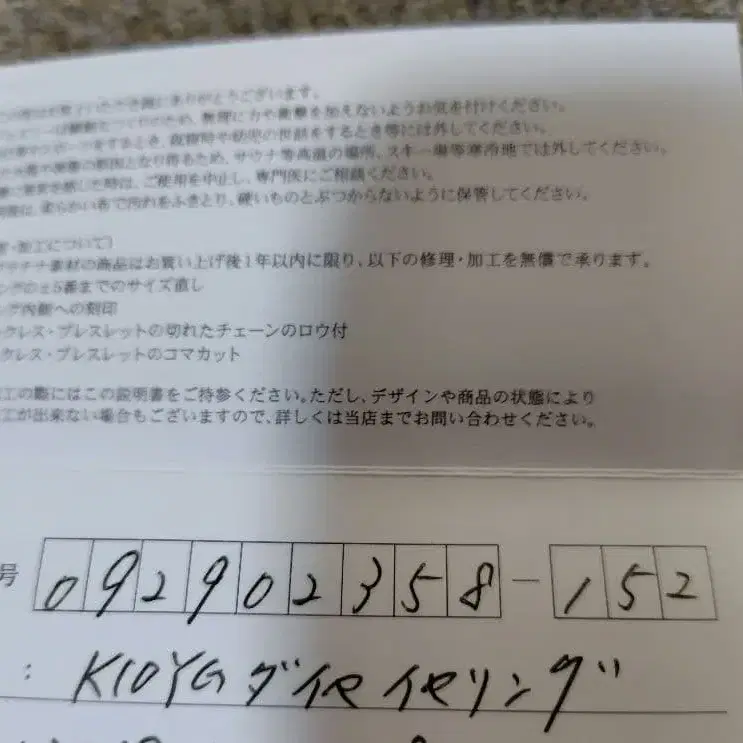 無理に力や衝撃を加えないようお気を付けください。
就寝時や幼児の世話をするとき等には外してください。
得るため、サウナ等高温の場所、スキー場等寒冷地では外してください。
異常を感じた時は、ご使用を中止し、専門医にご相談ください。
は、柔らかい布で汚れをふきとり、硬いものとぶつからないように保管してください。
・加工について〕
プラチナ素材の商品はお買い上げ後1年以内に限り、以下の修理・加工を無償で承ります。
ングの±5番までのサイズ直し
ング内側への刻印
ックレス・ブレスレットの切れたチェーンのロウ付
ックレス・ブレスレットのコマカット
工の際にはこの説明書をご持参ください。ただし、デザインや商品の状態により
工が出来ない場合もございますので、詳しくは当店までお問い合わせください。
号 092902358-152
: K10YGダイヤイヤリング